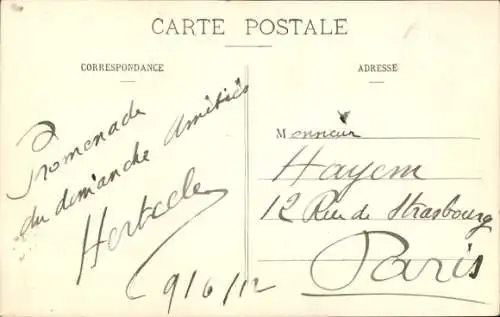 CARTE POSTALE
CORRESPONDANCE
Promenade
du demanche Amitiés
9/6/12
ADRESSE
Monnieur
Hayem
12 Rue de Strasbourg
Paris